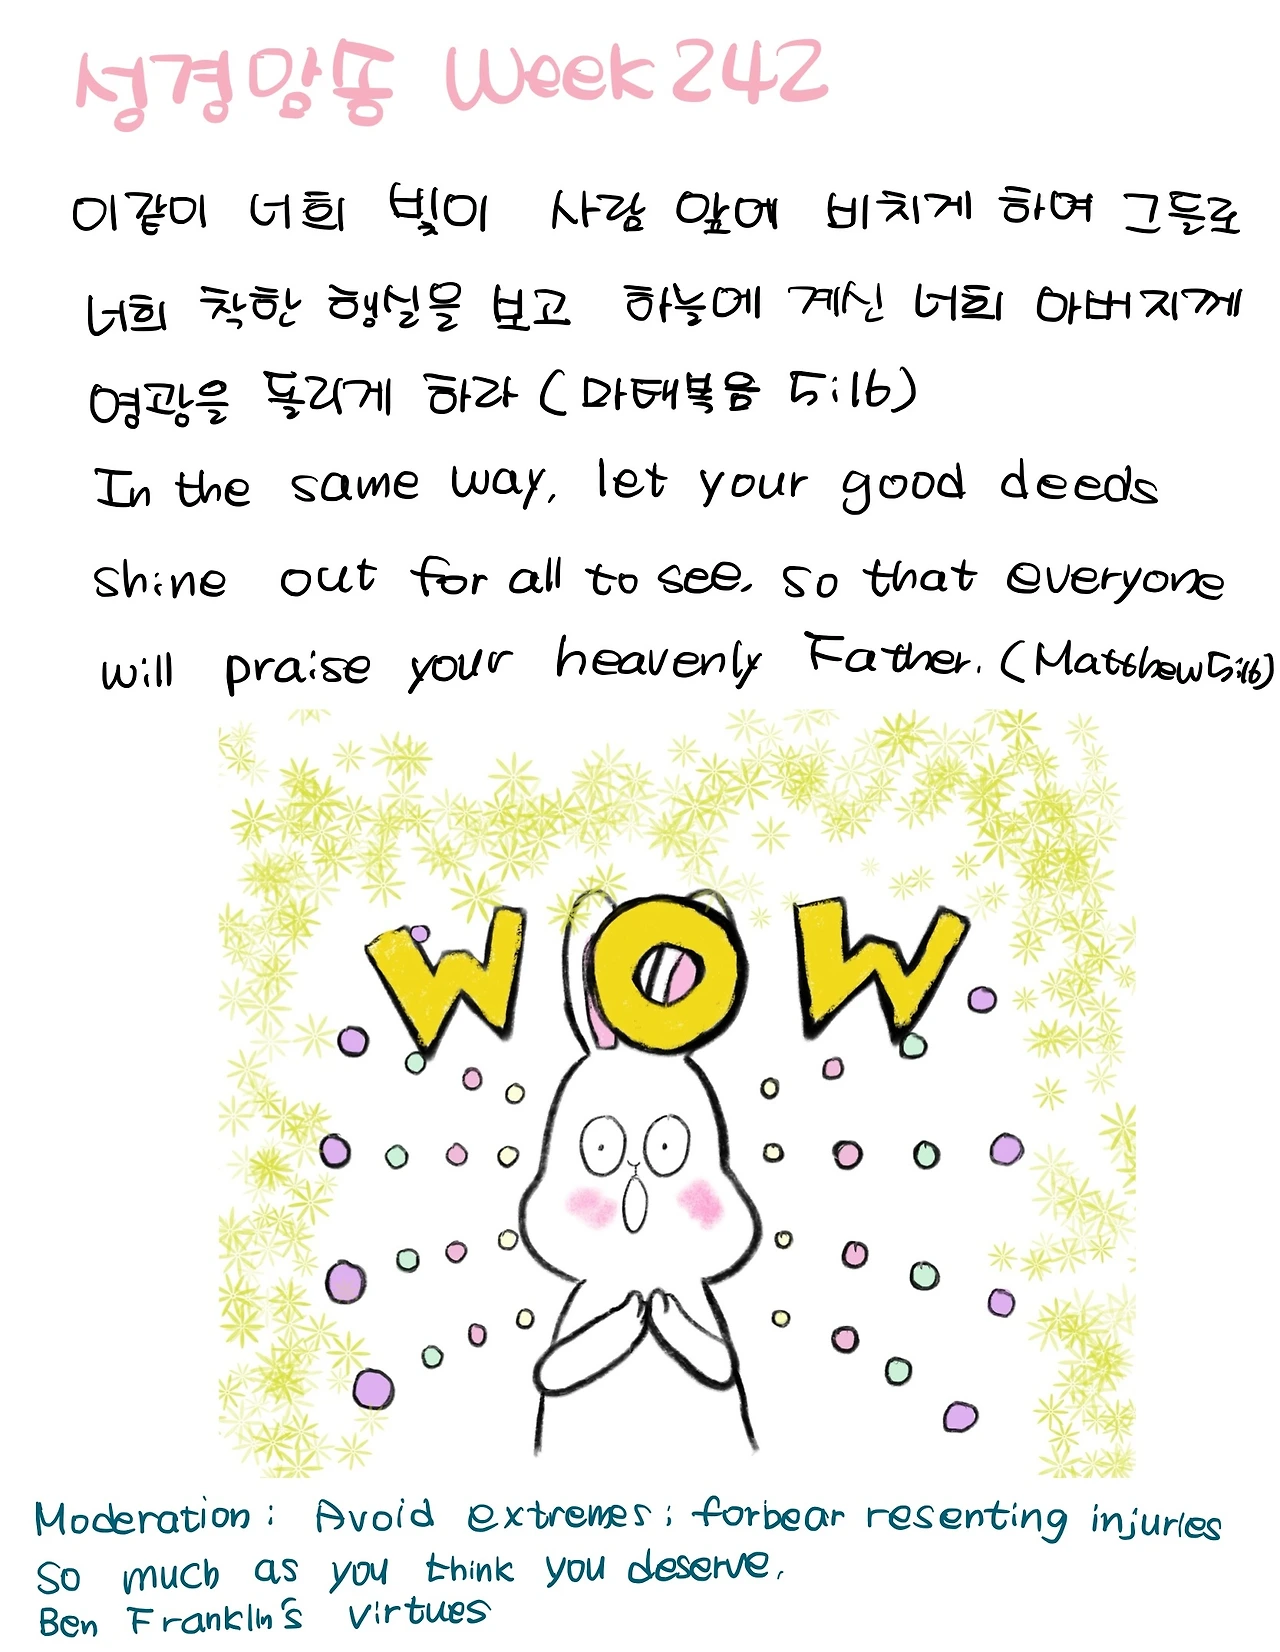 성경암송 Week 242
이같이 너희 빛이 사람 앞에 비치게 하여 그들로
너희 착한 행실을 보고 하늘에 계신 너희 아버지께
영광을 돌리게 하라 (마태복음 5:16)
In the same way, let your good deeds
shine out for all to see, so that everyone
will praise your heavenly Father. (Matthew 5:16)
WOW
Moderation : Avoid extremes ; forbear resenting injuries
so much as you think you deserve.
Ben Franklin's virtues